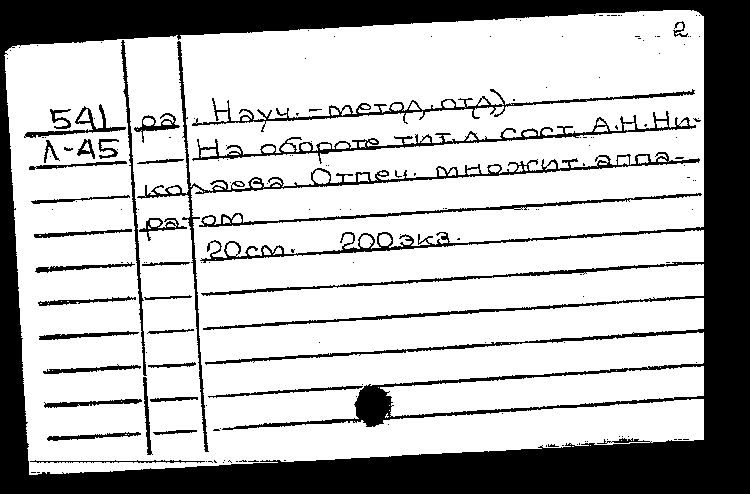 2
541 ра. Науч.-метод. отд).
Л-45 На обороте тит. л. сост. А.Н.Ни-
колаева. Отпеч. множит. аппа-
ратом.
20см. 200экз.